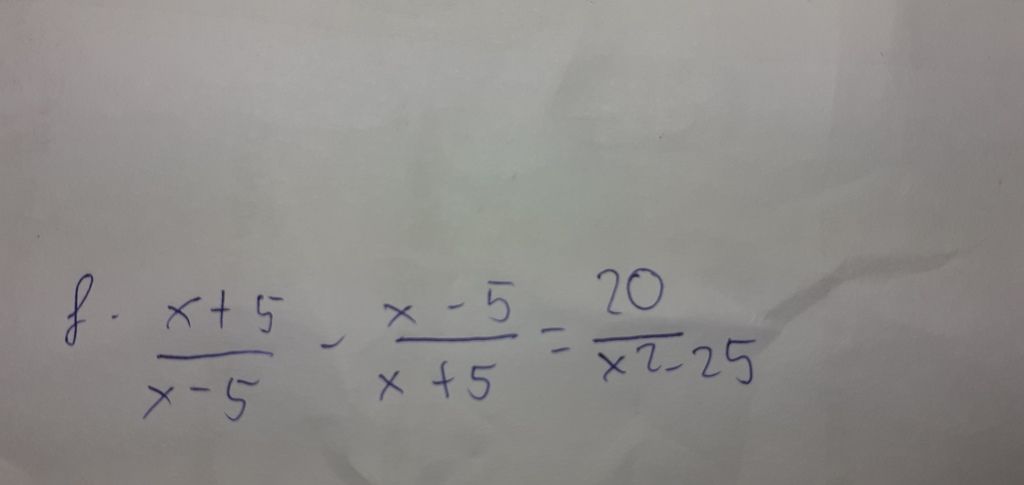 f. \frac{x+5}{x-5} - \frac{x-5}{x+5} = \frac{20}{x^2-25}